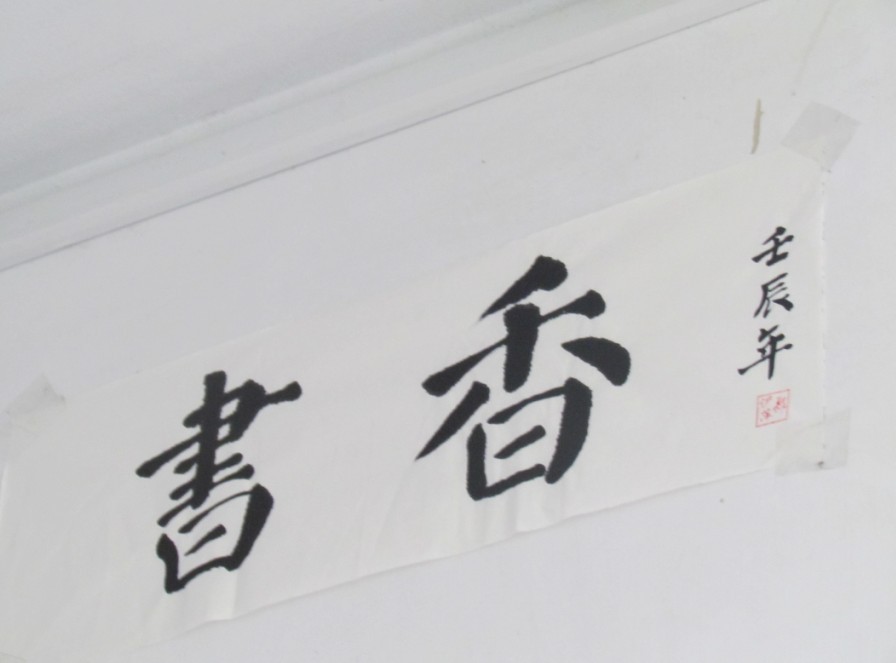 書香
壬辰年